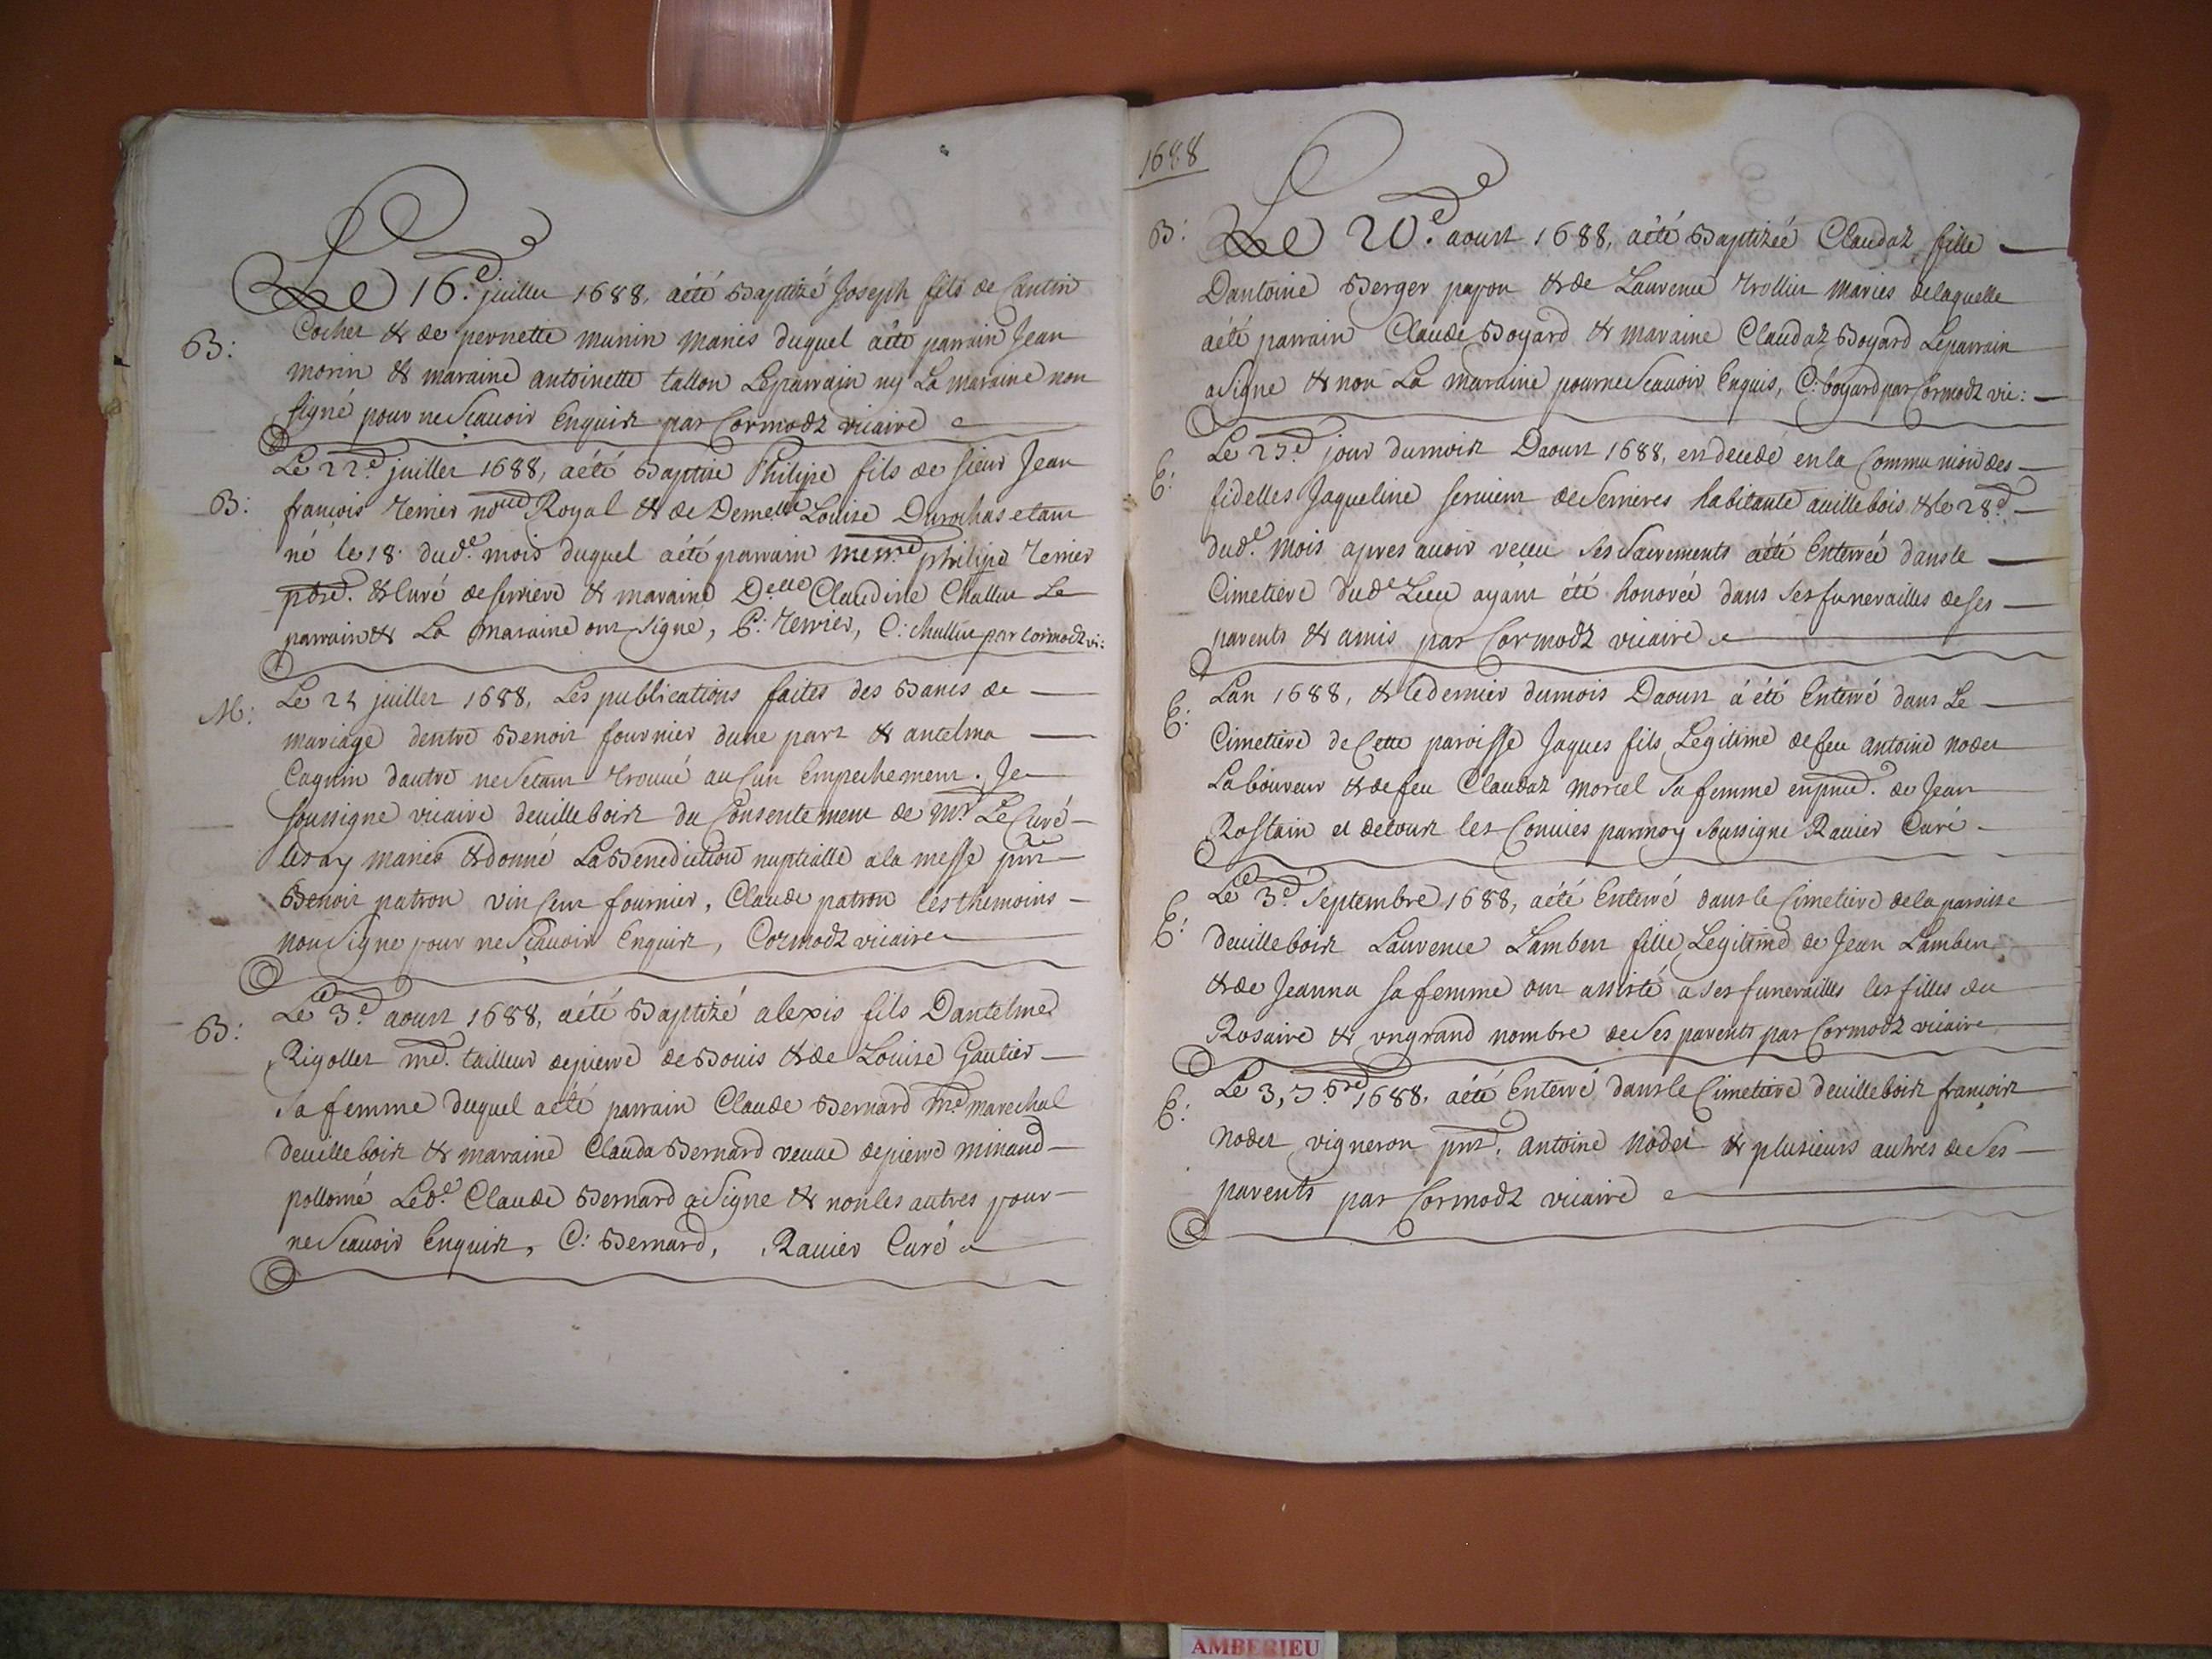 Le 16e. juillet 1688, aété Baptizé Joseph fils de Cantin
B: Cochet & de pernette munin mariés duquel aété parrain Jean
morin & maraine antoinette tallon Leparrain ny La maraine non
signé pour ne Scavoir Enquis par Cormodz vicaire
Le 22e juillet 1688, aété Baptise Philipe fils de sieur Jean
B: françois Terrier nore Royal & de Demelle Louise Durochas etant
né le 18. dud.e mois duquel aété parrain messre philipe Terrier
pbre. & Curé de serriere & maraine Delle Claudine Challut Le
parrain & La maraine ont signe, P: Terrier, C: challut par Cormodz vi:
M: Le juillet 1688, Les publications faites des Bancs de
mariage dentre Benoit fournier dune part & antelma
Cagnin dautre ne Setant trouvé auCun Empechement. Je
soussigne vicaire deuillebois du Consentement de Mr. Le Curé
lesay mariés & donné La Benediction nuptialle a la messe pnt
Benoit patron vinCent fournier, Claude patron les themoins
non Signe pour ne Scavoir Enquis, Cormodz vicaire
Le 3e. aoust 1688, aété Baptizé alexis fils Dantelme
B: Rigollet me. tailleur depierre de Bouis & de Louise Gautier
Sa femme duquel aété parrain Claude Bernard me marechal
deuillebois & maraine Clauda Bernard veuve depierre minaud
pollomé Led.e Claude Bernard aSigne & nonles autres pour
ne Scavoir Enquis, C: Bernard, Ravier Curé
1688
B: Le 20e. aoust 1688, aété Baptizéé Claudaz fille
Dantoine Berger papon & de Laurence trollier mariés delaquelle
aété parrain Claude Boyard & maraine Claudaz Boyard Leparrain
aSigne & non La maraine pour ne Scavoir Enquis, C: boyard par Cormodz vic:
E: Le jour dumois Daoust 1688, en decedé en la Communion des
fidelles Jaqueline seruient de Serrieres habitante auillebois & le 28e.
dud.e mois apres avoir reçeu Ses Sacrements aété Enterréé dansle
Cimetiere dude Lieu ayant été honoréé dans Ses funerailles de ses
parents & amis par Cormodz vicaire
E: Lan 1688, & ledernier dumois Daoust a été Enterré dans Le
Cimetiere de Cette paroisse Jaques fils Legitime defeu antoine nodet
Laboureur & defeu Claudaz morel Sa femme enpnce. de Jean
Rostain et detous les Conuies parmoy Soussigne Ravier Curé
E: Le 3e. Septembre 1688, aété Enterré dansle Cimetiere dela paroisse
deuillebois Laurence Lambert fille Legitime de Jean Lambert
& de Jeanna sa femme ont assisté a Ses funerailles les filles du
Rosaire & vngrand nombre de Ses parents par Cormodz vicaire
E: Le 3, 7bre 1688, aété Enterré dansle Cimetiere deuillebois françois
nodet vigneron pnt. antoine nodet & plusieurs autres de Ses
parents par Cormodz vicaire
AMBERIEU